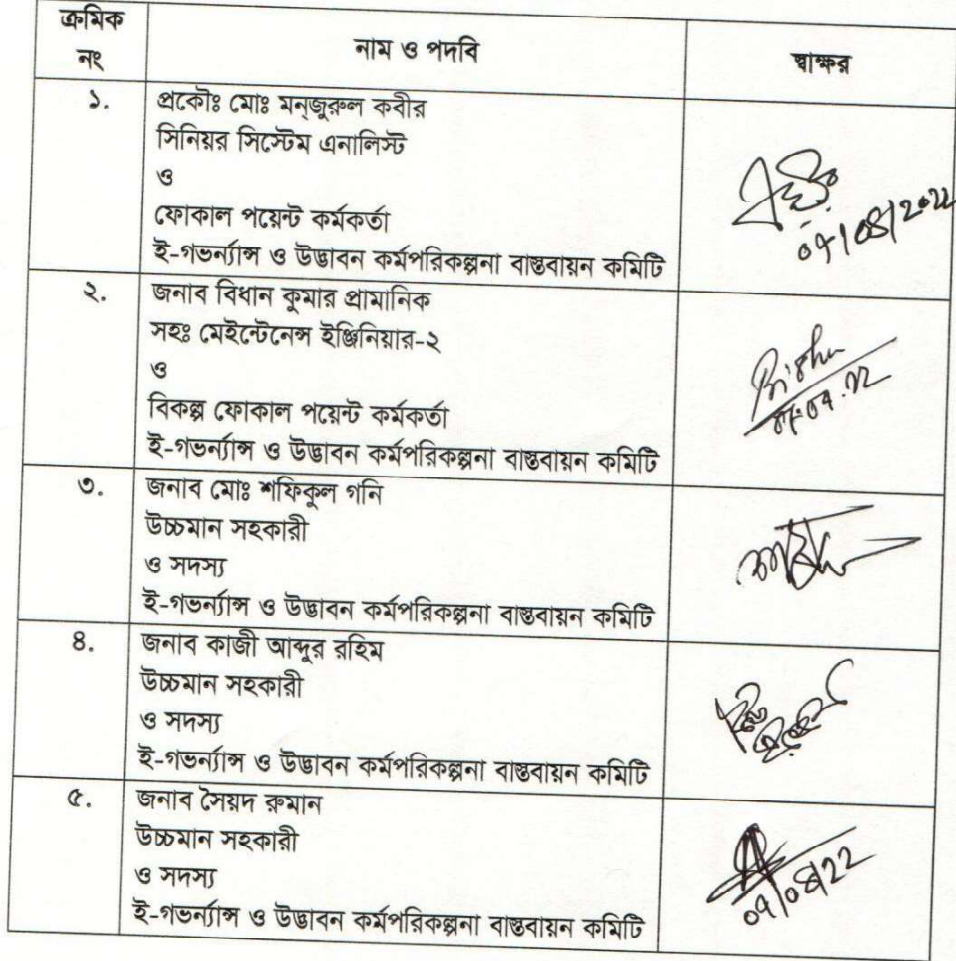 ক্রমিক
নং
নাম ও পদবি
স্বাক্ষর
১.
প্রকৌঃ মোঃ মন্‌জুরুল কবীর
সিনিয়র সিস্টেম এনালিস্ট
ও
ফোকাল পয়েন্ট কর্মকর্তা
ই-গভর্ন্যান্স ও উদ্ভাবন কর্মপরিকল্পনা বাস্তবায়ন কমিটি
২.
জনাব বিধান কুমার প্রামানিক
সহঃ মেইন্টেনেন্স ইঞ্জিনিয়ার-২
ও
বিকল্প ফোকাল পয়েন্ট কর্মকর্তা
ই-গভর্ন্যান্স ও উদ্ভাবন কর্মপরিকল্পনা বাস্তবায়ন কমিটি
৩.
জনাব মোঃ শফিকুল গনি
উচ্চমান সহকারী
ও সদস্য
ই-গভর্ন্যান্স ও উদ্ভাবন কর্মপরিকল্পনা বাস্তবায়ন কমিটি
৪.
জনাব কাজী আব্দুর রহিম
উচ্চমান সহকারী
ও সদস্য
ই-গভর্ন্যান্স ও উদ্ভাবন কর্মপরিকল্পনা বাস্তবায়ন কমিটি
৫.
জনাব সৈয়দ রুমান
উচ্চমান সহকারী
ও সদস্য
ই-গভর্ন্যান্স ও উদ্ভাবন কর্মপরিকল্পনা বাস্তবায়ন কমিটি